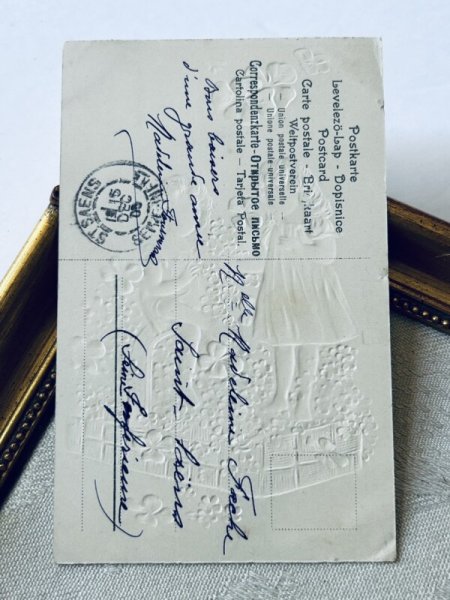 Postkarte
Levelező-Lap - Dopisnice
Postcard
Carte postale -
Weltpostverein
— Union postale universelle —
— Unione postale universale —
Correspondenzkarte - Открытое письмо
Cartolina postale — Tarjeta Postal.
Bons baisers
d'une grande amie
Madeleine
ST SAENS
DEC
Melle Madeleine
Saint-Saëns
(Seine Inférieure)